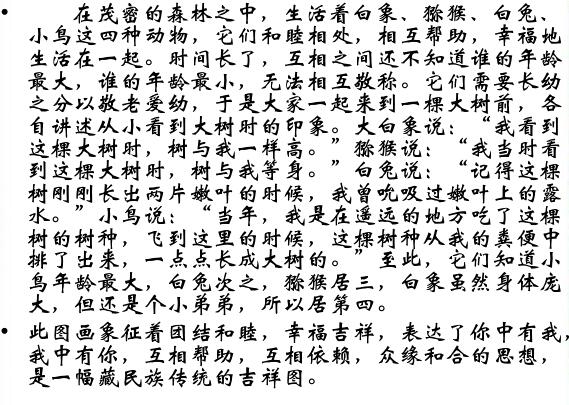 • 在茂密的森林之中，生活着白象、猕猴、白兔、
小鸟这四种动物，它们和睦相处，相互帮助，幸福地
生活在一起。时间长了，互相之间还不知道谁的年龄
最大，谁的年龄最小，无法相互敬称。它们需要长幼
之分以敬老爱幼，于是大家一起来到一棵大树前，各
自讲述从小看到大树时的印象。大白象说：“我看到
这棵大树时，树与我一样高。”猕猴说：“我当时看
到这棵大树时，树与我等身。”白兔说：“记得这棵
树刚刚长出两片嫩叶的时候，我曾吮吸过嫩叶上的露
水。”小鸟说：“当年，我是在遥远的地方吃了这棵
树的树种，飞到这里的时候，这棵树种从我的粪便中
排了出来，一点点长成大树的。”至此，它们知道小
鸟年龄最大，白兔次之，猕猴居三，白象虽然身体庞
大，但还是个小弟弟，所以居第四。
• 此图画象征着团结和睦，幸福吉祥，表达了你中有我，
我中有你，互相帮助，互相依赖，众缘和合的思想，
是一幅藏民族传统的吉祥图。